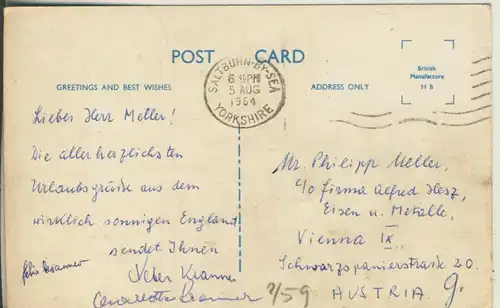 POST CARD
GREETINGS AND BEST WISHES
ADDRESS ONLY
British
Manufacture
H B
SALTBURN-BY-SEA
6 15PM
5 AUG
1964
YORKSHIRE
Liebes Herr Meller!
Die aller herzlichsten
Urlaubsgrüße aus dem
wirklich sonnigen England
sendet Ihnen
Peter Kranner
Felix Kranner
Charlotte Kranner
Mr. Philipp Meller,
c/o Firma Alfred Hesz,
Eisen u. Metalle,
Vienna IX.
Schwarzspanierstraße 20.
AUSTRIA 9.
7/59